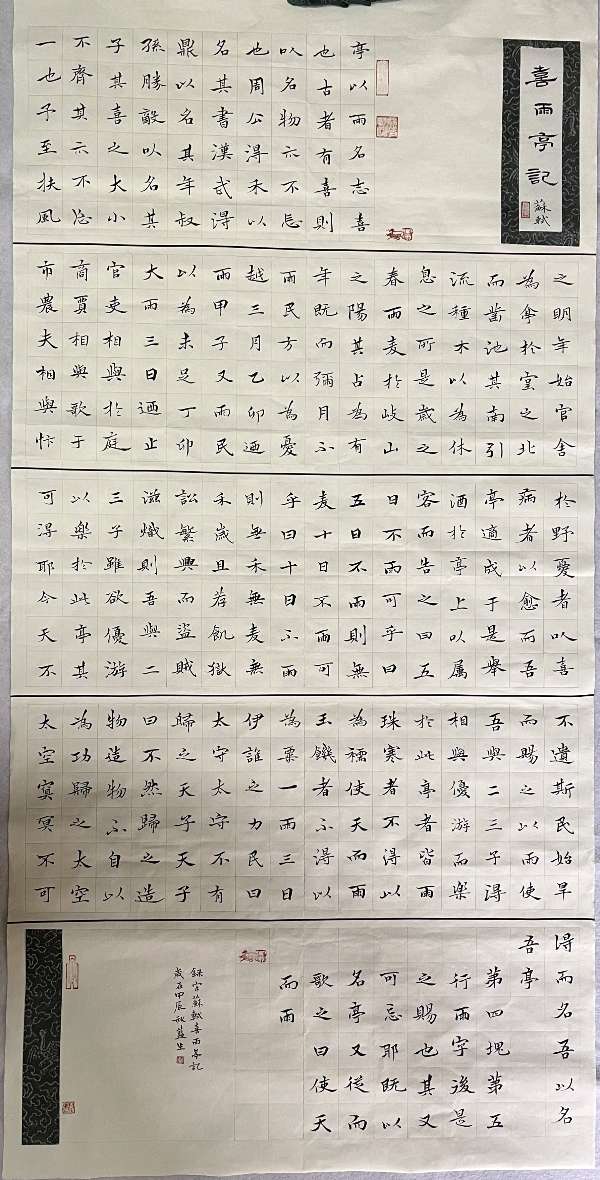 喜雨亭記
蘇軾
亭以雨名志喜
也古者有喜則
以名物示不忘
也周公得禾以
名其書漢武得
鼎以名其年叔
孫勝敵以名其
子其喜之大小
不齊其示不忘
一也予至扶風
之明年始官舍
為亭於堂之北
而鑿池其南引
流種木以為休
息之所是歲之
春雨麦於岐山
之陽其占為有
年既而彌月不
雨民方以為憂
越三月乙卯迺
雨甲子又雨民
以為未足丁卯
大雨三日迺止
官吏相與於庭
商賈相與歌于
市農夫相與忭
於野憂者以喜
病者以愈而吾
亭適成于是舉
酒於亭上以属
客而告之曰五
日不雨可乎曰
五日不雨則無
麦十日不雨可
乎曰十日不雨
則無禾無麦無
禾歲且荐飢獄
訟繁興而盜賊
滋熾則吾與二
三子雖欲優游
以樂於此亭其
可得耶今天不
不遺斯民始旱
而賜之以雨使
吾與二三子得
相與優游而樂
於此亭者皆雨
珠寒者不得以
為襦使天而雨
玉饑者不得以
為粟一雨三日
伊誰之力民曰
太守太守不有
歸之天子天子
曰不然歸之造
物造物不自以
為功歸之太空
太空冥冥不可
得而名吾以名
吾亭
第四塊第五
行雨字後是
之賜也其又
可忘耶既以
名亭又從而
歌之曰使天
而雨
錄宋蘇軾喜雨亭記
歲在甲辰秋